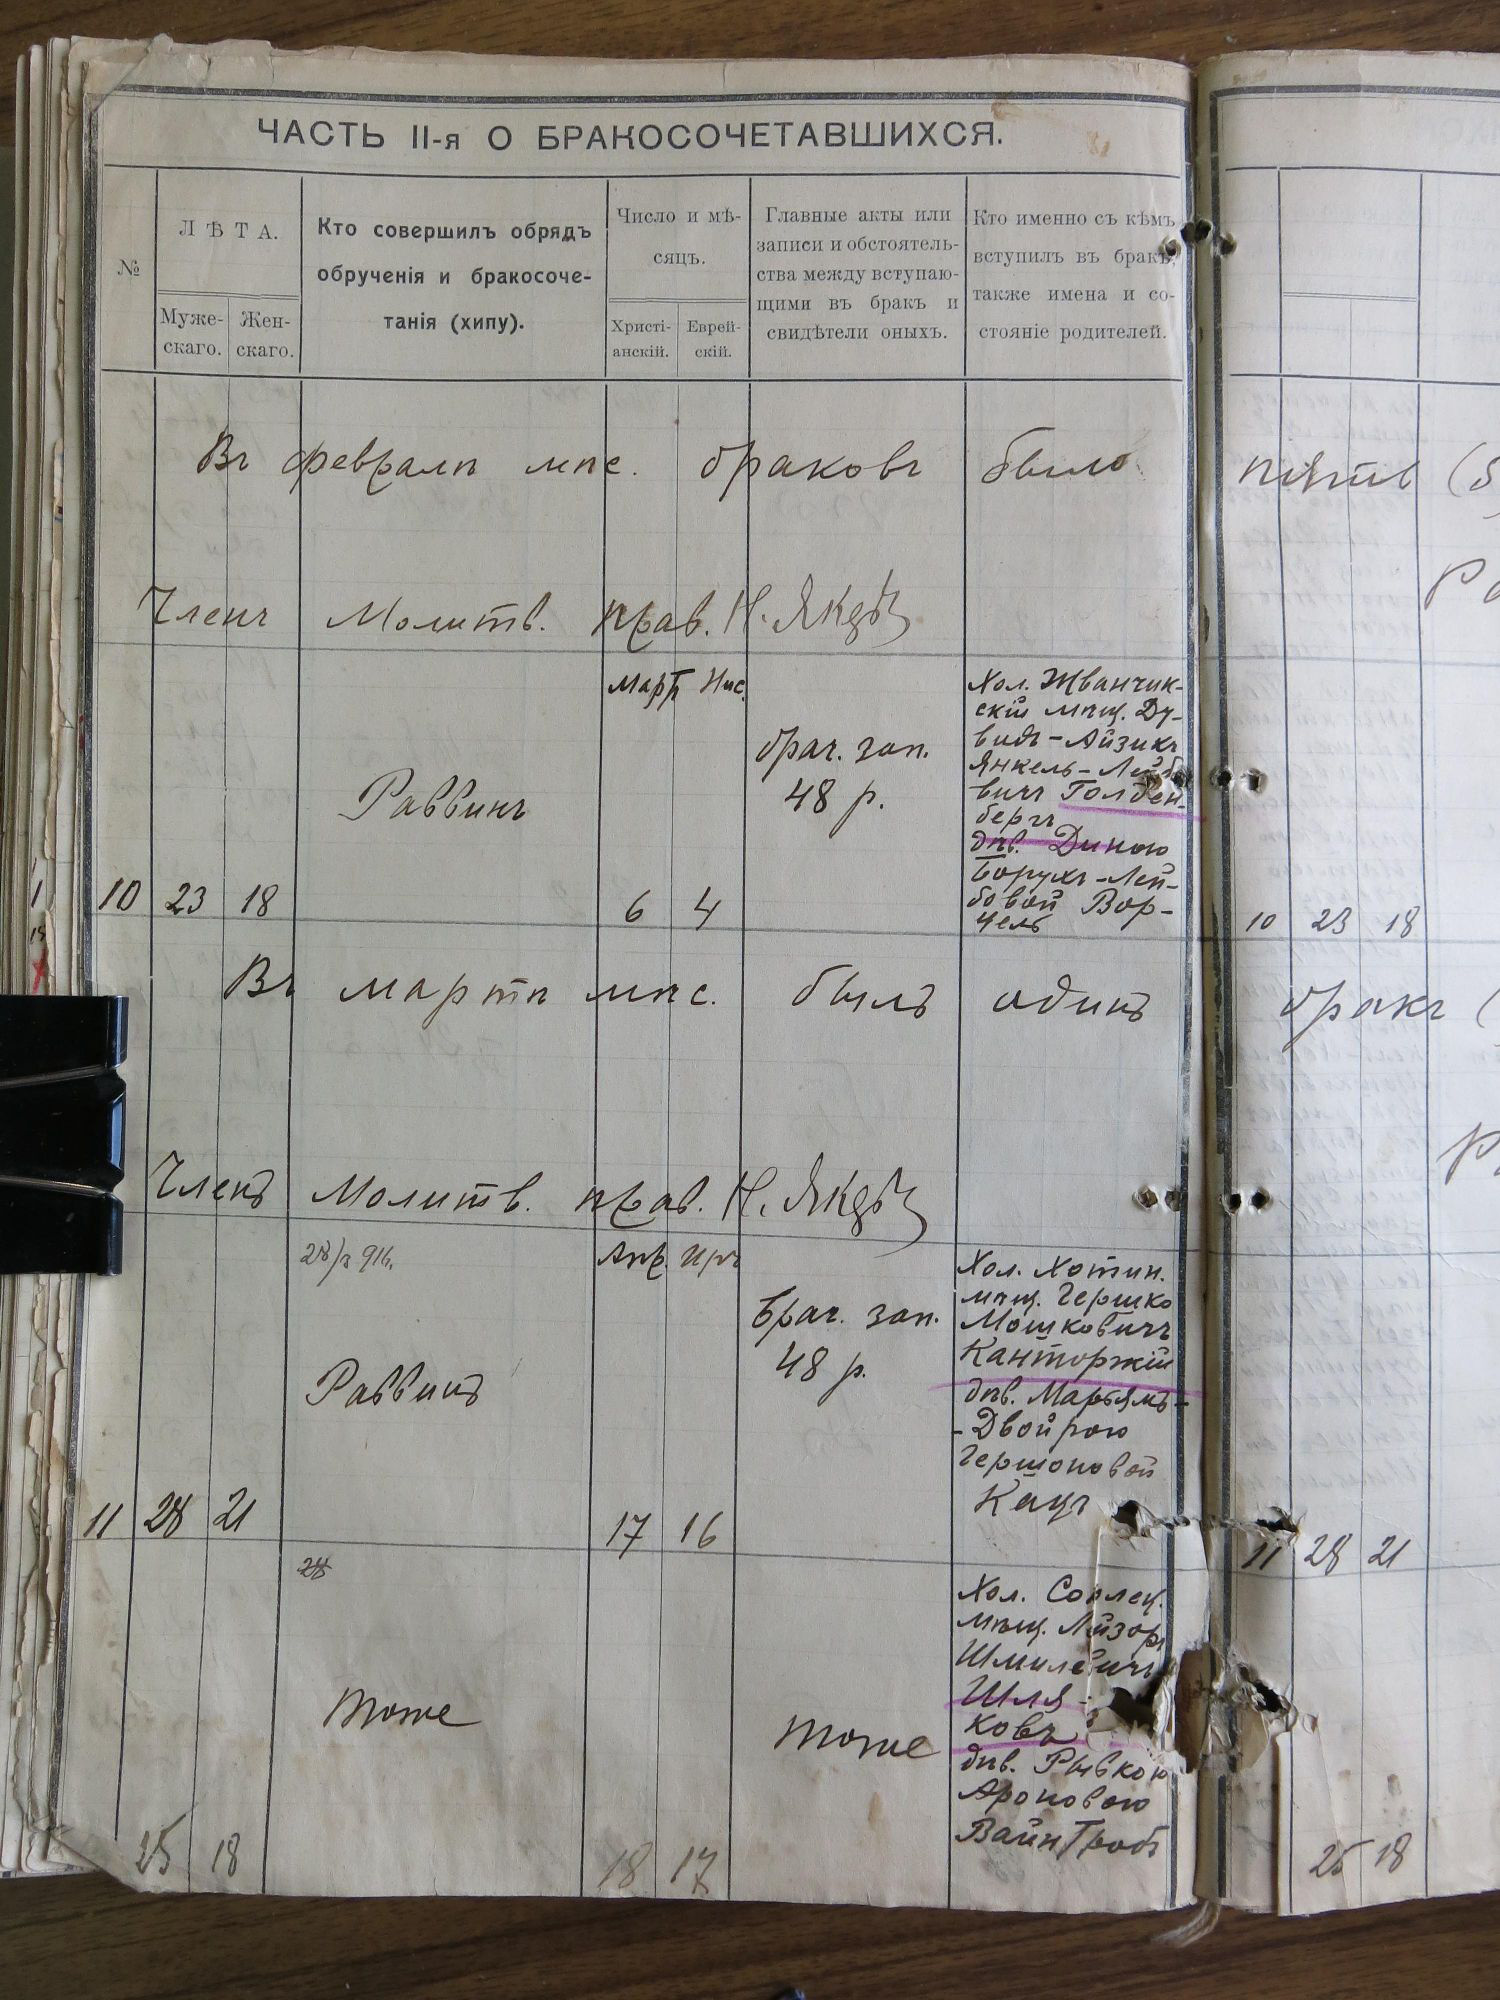 ЧАСТЬ II-я О БРАКОСОЧЕТАВШИХСЯ.
№
ЛѢТА.
Муже-
скаго.
Жен-
скаго.
Кто совершилъ обрядъ
обрученія и бракосоче-
танія (хипу).
Число и мѣ-
сяцъ.
Христі-
анскій.
Еврей-
скій.
Главные акты или
записи и обстоятель-
ства между вступаю-
щими въ бракъ и
свидѣтели оныхъ.
Кто именно съ кѣмъ
вступилъ въ бракъ,
также имена и со-
стояніе родителей.
Въ февралѣ мѣс. браковъ было пять (5
Членъ Молитв. прав. Н.
Мартъ Нис.
10 23 18
Раввинъ
6 4
брач. зап.
48 р.
Хол. Жванчик-
скій мѣщ. Ду-
видъ-Айзикъ
Янкель-Лейбо
вичъ Голден-
бергъ
дѣв. Диною
Борухъ-Лей-
бовой Вор-
цель
10 23 18
Въ мартѣ мѣс. былъ одинъ бракъ (
Членъ Молитв. прав. Н.
Апр. Иръ
11 28 21
Раввинъ
17 16
Брач. зап.
48 р.
Хол. Хотин.
мѣщ. Гершко
Мошковичъ
Канторжій
дѣв. Марьямъ-
-Двойрою
Гершоновой
Кацъ
11 28 21
28
25 18
тоже
18 17
тоже
Хол.
мѣщ. Лейзоръ
Шмилевичъ
Шля-
ковъ
дѣв. Рывкою
Ароновою
Вайнтробъ
25 18